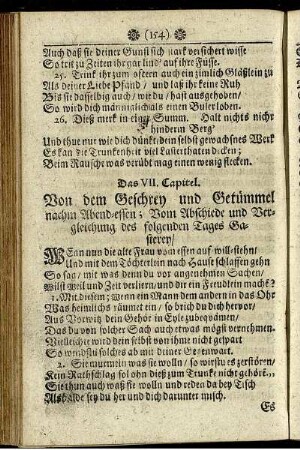 (154)
Auch daß sie deiner Gunst sich stark versichert wisse
So trit zu Zeiten ihr gar lind auf ihre Füsse.
25. Trink ihr zum öftern auch ein zimlich Gläßlein zu
Als deiner Liebe Pfand / und laß ihr keine Ruh
Bis sie dasselbig auch / wie du / hast ausgehoben /
So wird dich männiglich als einen Buler loben.
26. Dieß merk in einer Summ. Halt nichts nicht hinderm Berg
Und thue nur wie dich dünkt: dein selbst gewachsnes Werk
Es kan die Trunkenheit viel Lasterthaten dicken;
Beim Rausche was verübt mag einen wenig stecken.
Das VII. Capitel.
Von dem Geschrey und Getümmel
nachm Abend-essen; Vom Abschiede und Ver-
gleichung des folgenden Tages Ga-
sterey /
WAnn nun die alte Frau vom essen auf will stehn /
Und mit dem Töchterlein nach Haus zu schlaffen gehn
So sag / mit was denn du vor angenehmen Sachen /
Wilst weil und Zeit verliern / und dir ein Freudlein mach?
1. Mit diesem; wenn ein Mann dem andern in das Ohr
Was heimlichs räumet ein / so brich du dich hervor /
Aus Vorwitz dein Gehör in Eyl zubequämen /
Das du von solcher Sach auch etwas mögst vernehmen.
Vielleicht wird dein selbst von ihme nicht gespart
So wendstu solches ab mit deiner Gegenwart.
2. Sie murmeln was sie wolln / so wirstu es zerstören /
Kein Rathschlag sol ohn dieß zum Trunke nicht gehören
Sie thun auch was sie wolln und reden da bey Tisch
Alsbalde sey du her und dich darunter misch.
Es